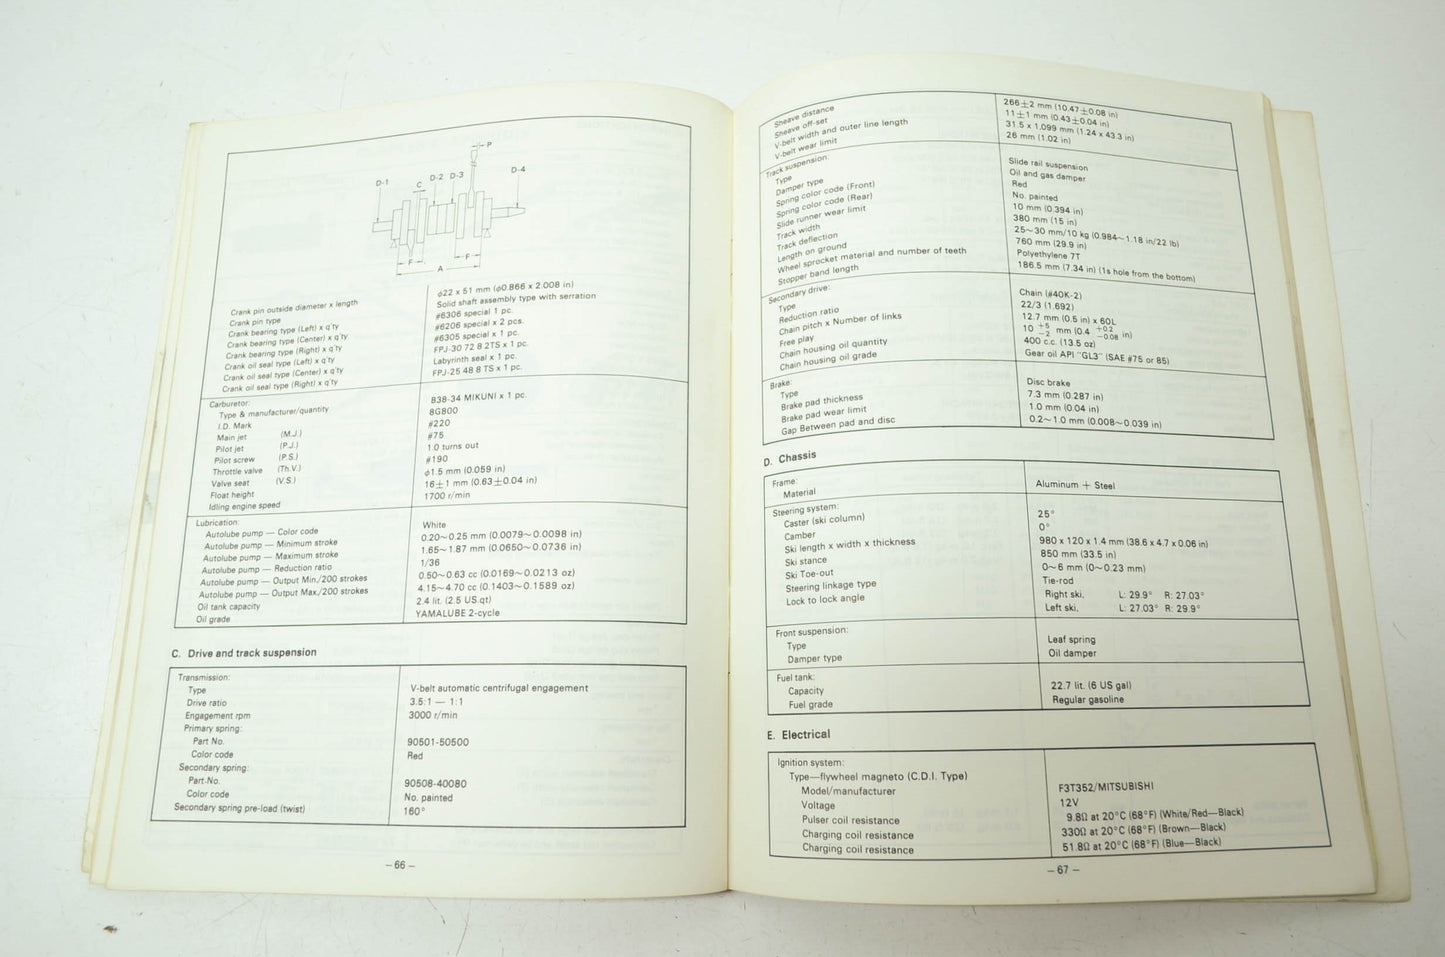 P
D-1 C D-2 D-3 D-4
F F
A
Crank pin outside diameter x length φ22 x 51 mm (φ0.866 x 2.008 in)
Crank pin type Solid shaft assembly type with serration
Crank bearing type (Left) x q'ty #6306 special 1 pc.
Crank bearing type (Center) x q'ty #6206 special x 2 pcs.
Crank bearing type (Right) x q'ty #6305 special x 1 pc.
Crank oil seal type (Left) x q'ty FPJ-30 72 8 2TS x 1 pc.
Crank oil seal type (Center) x q'ty Labyrinth seal x 1 pc.
Crank oil seal type (Right) x q'ty FPJ-25 48 8 TS x 1 pc.
Carburetor:
Type & manufacturer/quantity B38-34 MIKUNI x 1 pc.
I.D. Mark 8G800
Main jet (M.J.) #220
Pilot jet (P.J.) #75
Pilot screw (P.S.) 1.0 turns out
Throttle valve (Th.V.) #190
Valve seat (V.S.) φ1.5 mm (0.059 in)
Float height 16±1 mm (0.63±0.04 in)
Idling engine speed 1700 r/min
Lubrication:
Autolube pump — Color code White
Autolube pump — Minimum stroke 0.20~0.25 mm (0.0079~0.0098 in)
Autolube pump — Maximum stroke 1.65~1.87 mm (0.0650~0.0736 in)
Autolube pump — Reduction ratio 1/36
Autolube pump — Output Min./200 strokes 0.50~0.63 cc (0.0169~0.0213 oz)
Autolube pump — Output Max./200 strokes 4.15~4.70 cc (0.1403~0.1589 oz)
Oil tank capacity 2.4 lit. (2.5 US.qt)
Oil grade YAMALUBE 2-cycle
C. Drive and track suspension
Transmission:
Type V-belt automatic centrifugal engagement
Drive ratio 3.5:1 — 1:1
Engagement rpm 3000 r/min
Primary spring:
Part No. 90501-50500
Color code Red
Secondary spring:
Part-No. 90508-40080
Color code No. painted
Secondary spring pre-load (twist) 160°
– 66 –
Sheave distance 266±2 mm (10.47±0.08 in)
Sheave off-set 11±1 mm (0.43±0.04 in)
V-belt width and outer line length 31.5 x 1.099 mm (1.24 x 43.3 in)
V-belt wear limit 26 mm (1.02 in)
Track suspension:
Type Slide rail suspension
Damper type Oil and gas damper
Spring color code (Front) Red
Spring color code (Rear) No. painted
Slide runner wear limit 10 mm (0.394 in)
Track width 380 mm (15 in)
Track deflection 25~30 mm/10 kg (0.984~1.18 in/22 lb)
Length on ground 760 mm (29.9 in)
Wheel sprocket material and number of teeth Polyethylene 7T
Stopper band length 186.5 mm (7.34 in) (1s hole from the bottom)
Secondary drive:
Type Chain (#40K-2)
Reduction ratio 22/3 (1.692)
Chain pitch x Number of links 12.7 mm (0.5 in) x 60L
Free play 10 +5 −2 mm (0.4 +0.2 −0.08 in)
Chain housing oil quantity 400 c.c. (13.5 oz)
Chain housing oil grade Gear oil API "GL3" (SAE #75 or 85)
Brake:
Type Disc brake
Brake pad thickness 7.3 mm (0.287 in)
Brake pad wear limit 1.0 mm (0.04 in)
Gap Between pad and disc 0.2~1.0 mm (0.008~0.039 in)
D. Chassis
Frame:
Material Aluminum + Steel
Steering system:
Caster (ski column) 25°
Camber 0°
Ski length x width x thickness 980 x 120 x 1.4 mm (38.6 x 4.7 x 0.06 in)
Ski stance 850 mm (33.5 in)
Ski Toe-out 0~6 mm (0~0.23 mm)
Steering linkage type Tie-rod
Lock to lock angle Right ski, L: 29.9° R: 27.03°
Left ski, L: 27.03° R: 29.9°
Front suspension:
Type Leaf spring
Damper type Oil damper
Fuel tank:
Capacity 22.7 lit. (6 US gal)
Fuel grade Regular gasoline
E. Electrical
Ignition system:
Type—flywheel magneto (C.D.I. Type)
Model/manufacturer F3T352/MITSUBISHI
Voltage 12V
Pulser coil resistance 9.8Ω at 20°C (68°F) (White/Red—Black)
Charging coil resistance 330Ω at 20°C (68°F) (Brown—Black)
Charging coil resistance 51.8Ω at 20°C (68°F) (Blue—Black)
– 67 –